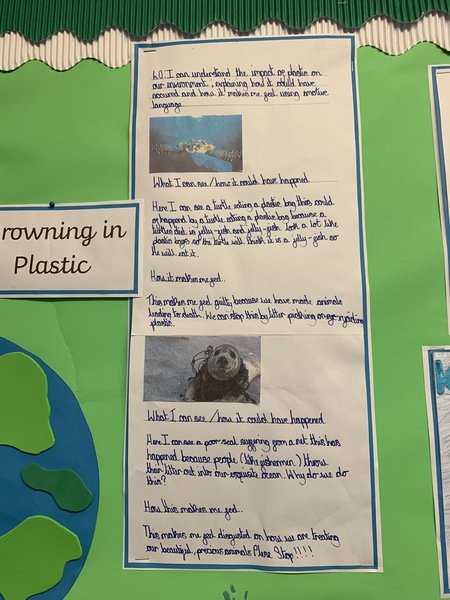 L.O: I can understand the impact of plastic on
our environment, explaining how it could have
occured and how it makes me feel using emotive
language.
What I can see / how it could have happened
Here I can see a turtle eating a plastic bag this could
of happend by a turtle eating a plastic bag because a
turtles diet is jelly-fish and jelly-fish look a lot like
plastic bags so the turtle will think it is a jelly-fish so
he will eat it.
How it makes me feel.
rowning in
Plastic
This makes me feel guilty because we have made animals
leading to death. We can stop this by litter picking or
plastic.
What I can see / how it could have happened
Here I can see a poor seal suffering from a net this has
happened because people (like fishermen) throw
their litter out into our exquisite ocean. Why do we do
this?
How this makes me feel.
This makes me feel disgusted on how we are treating
our beautiful, precious animals Plese Stop!!!!